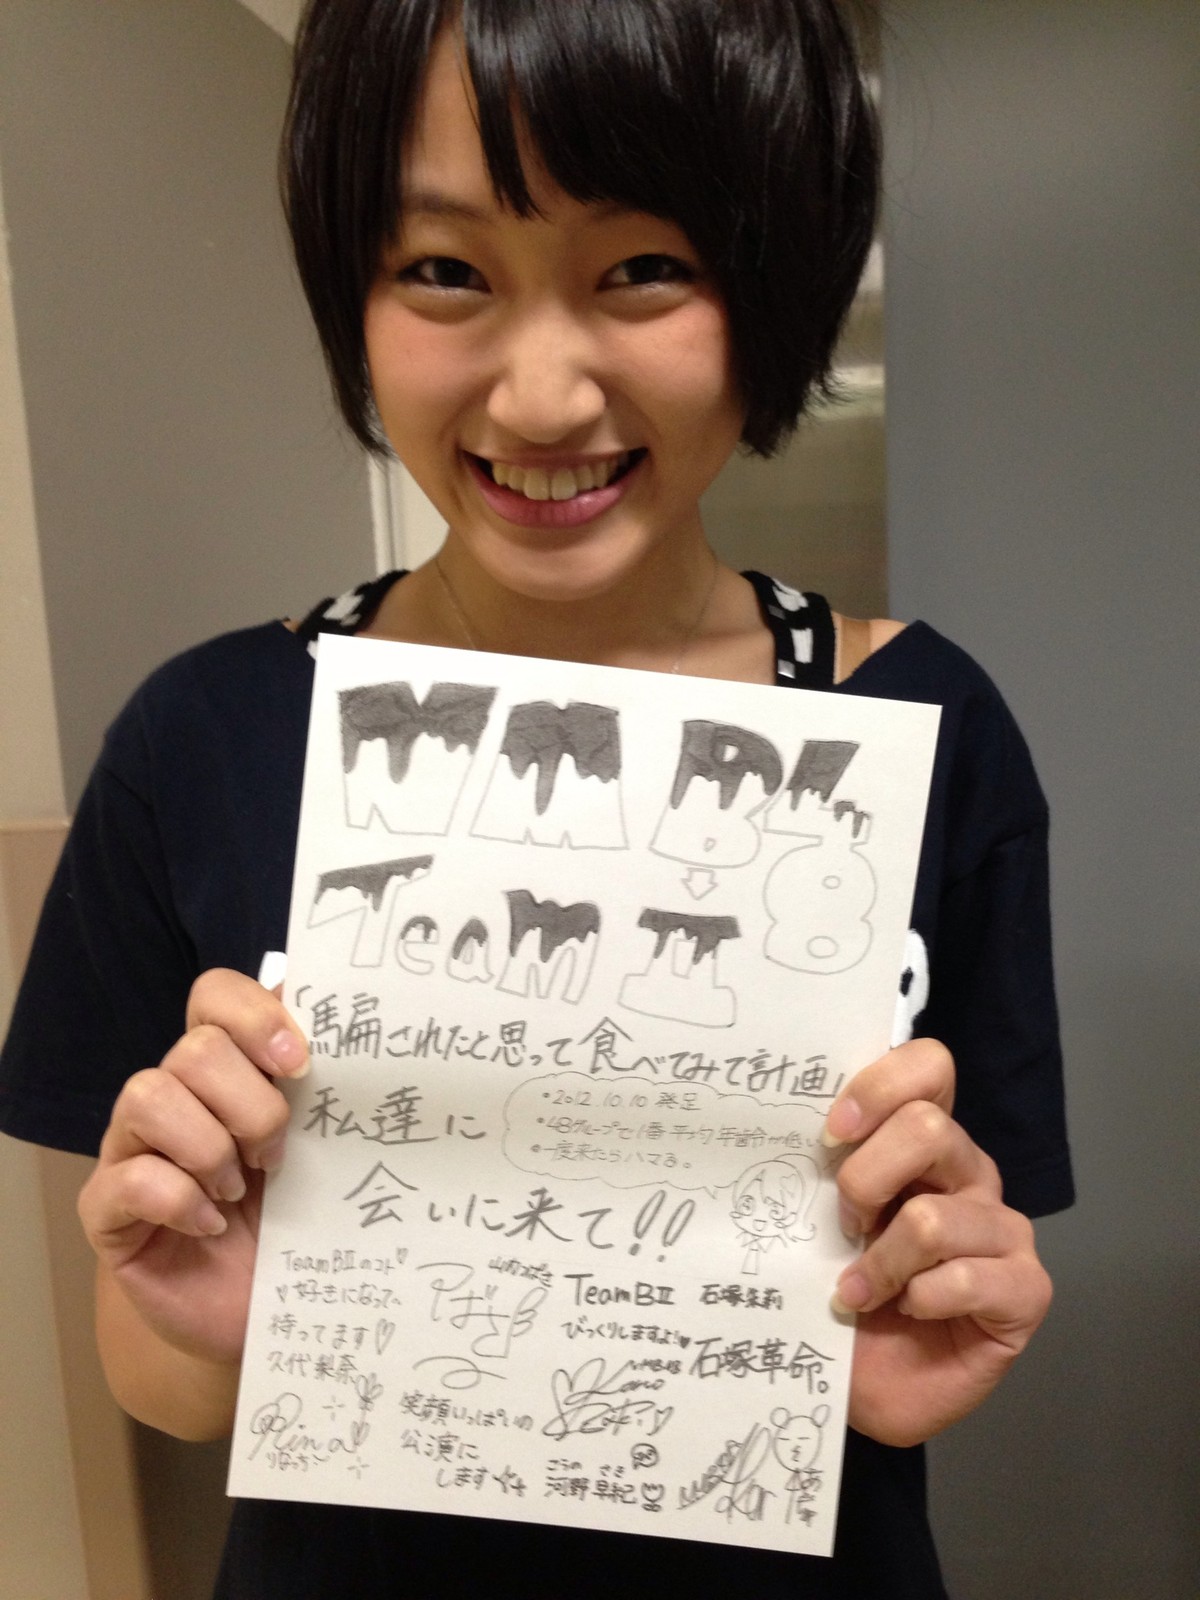 NMB48
Team BⅡ
「騙されたと思って食べてみて計画」
私達に
・2012.10.10 発足
・48グループで1番平均年齢が低い
・一度来たらハマる。
会いに来て!!
TeamBⅡのコト♡
♡好きになって
待ってます♡
久代梨奈
Rina
りなっち
山内つばさ
つばさ
笑顔いっぱいの
公演に
します
TeamBⅡ
びっくりしますよ!♥
NMB48
Saki
こうの さき
河野早紀
石塚朱莉
石塚革命。